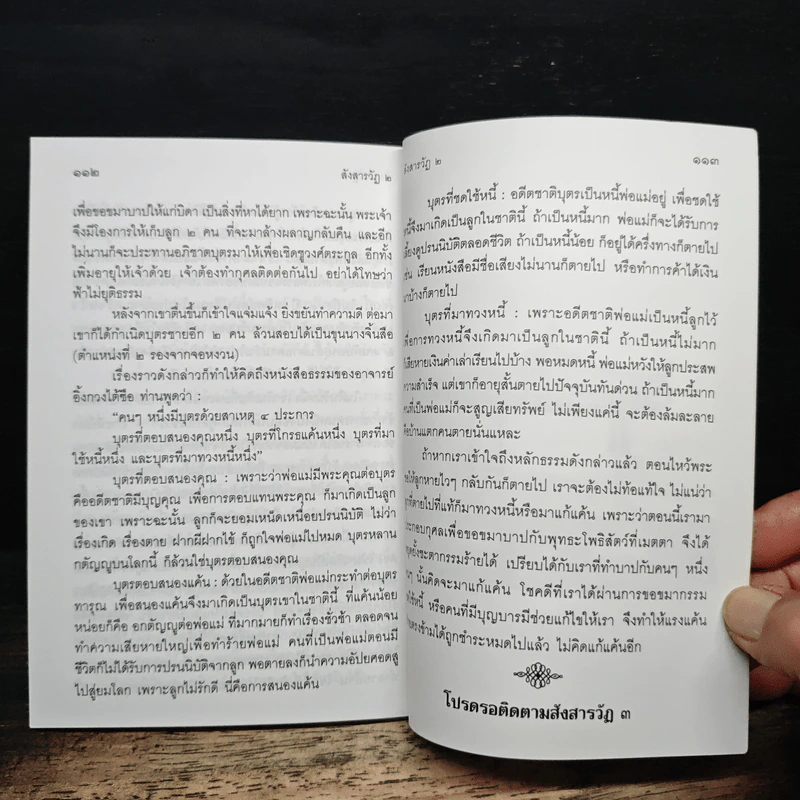 ๑๑๒ สังสารวัฏ ๒
เพื่อขอขมาบาปให้แก่บิดา เป็นสิ่งที่หาได้ยาก เพราะฉะนั้น พระเจ้า
จึงมีโองการให้เก็บลูก ๒ คน ที่จะมาล้างผลาญกลับคืน และอีก
ไม่นานก็จะประทานอภิชาตบุตรมาให้เพื่อเชิดชูวงศ์ตระกูล อีกทั้ง
เพิ่มอายุให้เจ้าด้วย เจ้าต้องทำกุศลติดต่อกันไป อย่าได้โทษว่า
ฟ้าไม่ยุติธรรม
หลังจากเขาตื่นขึ้นก็เข้าใจแจ่มแจ้ง ยิ่งขยันทำความดี ต่อมา
เขาก็ได้กำเนิดบุตรชายอีก ๒ คน ล้วนสอบได้เป็นขุนนางจิ้นสือ
(ตำแหน่งที่ ๒ รองจากจอหงวน)
เรื่องราวดังกล่าวก็ทำให้คิดถึงหนังสือธรรมของอาจารย์
อิ้งกวงไต้ซือ ท่านพูดว่า :
“คนๆ หนึ่งมีบุตรด้วยสาเหตุ ๔ ประการ
บุตรที่ตอบสนองคุณหนึ่ง บุตรที่โกรธแค้นหนึ่ง บุตรที่มา
ใช้หนี้หนึ่ง และบุตรที่มาทวงหนี้หนึ่ง”
บุตรที่ตอบสนองคุณ : เพราะว่าพ่อแม่มีพระคุณต่อบุตร
คืออดีตชาติมีบุญคุณ เพื่อการตอบแทนพระคุณ ก็มาเกิดเป็นลูก
ของเขา เพราะฉะนั้น ลูกก็จะยอมเหน็ดเหนื่อยปรนนิบัติ ไม่ว่า
เรื่องเกิด เรื่องตาย ฝากผีฝากไข้ ก็ถูกใจพ่อแม่ไปหมด บุตรหลาน
กตัญญูบนโลกนี้ ก็ล้วนใช่บุตรตอบสนองคุณ
บุตรตอบสนองแค้น : ด้วยในอดีตชาติพ่อแม่กระทำต่อบุตร
ทารุณ เพื่อสนองแค้นจึงมาเกิดเป็นบุตรเขาในชาตินี้ ที่แค้นน้อย
หน่อยก็คือ อกตัญญูต่อพ่อแม่ ที่มากมายก็ทำเรื่องชั่วช้า ตลอดจน
ทำความเสียหายใหญ่เพื่อทำร้ายพ่อแม่ คนที่เป็นพ่อแม่ตอนมี
ชีวิตก็ไม่ได้รับการปรนนิบัติจากลูก พอตายลงก็นำความอัปยศอดสู
ไปสู่ยมโลก เพราะลูกไม่รักดี นี่คือการสนองแค้น
สังสารวัฏ ๒ ๑๑๓
บุตรที่ชดใช้หนี้ : อดีตชาติบุตรเป็นหนี้พ่อแม่อยู่ เพื่อชดใช้
หนี้จึงมาเกิดเป็นลูกในชาตินี้ ถ้าเป็นหนี้มาก พ่อแม่ก็จะได้รับการ
เลี้ยงดูปรนนิบัติตลอดชีวิต ถ้าเป็นหนี้น้อย ก็อยู่ได้ครึ่งทางก็ตายไป
เช่น เรียนหนังสือมีชื่อเสียงไม่นานก็ตายไป หรือทำการค้าได้เงิน
มาบ้างก็ตายไป
บุตรที่มาทวงหนี้ : เพราะอดีตชาติพ่อแม่เป็นหนี้ลูกไว้
เพื่อการทวงหนี้จึงเกิดมาเป็นลูกในชาตินี้ ถ้าเป็นหนี้ไม่มาก
เสียหายเงินค่าเล่าเรียนไปบ้าง พอหมดหนี้ พ่อแม่หวังให้ลูกประสพ
ความสำเร็จ แต่เขาก็อายุสั้นตายไปปัจจุบันทันด่วน ถ้าเป็นหนี้มาก
คนที่เป็นพ่อแม่ก็จะสูญเสียทรัพย์ ไม่เพียงแค่นี้ จะต้องล้มละลาย
บ้านแตกคนตายนั่นแหละ
ถ้าหากเราเข้าใจถึงหลักธรรมดังกล่าวแล้ว ตอนไหว้พระ
ให้ลูกหายไวๆ กลับกันก็ตายไป เราจะต้องไม่ท้อแท้ใจ ไม่แน่ว่า
ที่ตายไปที่แท้ก็มาทวงหนี้หรือมาแก้แค้น เพราะว่าตอนนี้เรามา
กอบกุศลเพื่อขอขมาบาปกับพุทธะโพธิสัตว์ที่เมตตา จึงได้
ยั้งชะตากรรมร้ายได้ เปรียบได้กับเราที่ทำบาปกับคนๆ หนึ่ง
นั้นคิดจะมาแก้แค้น โชคดีที่เราได้ผ่านการขอขมากรรม
ใช้หนี้ หรือคนที่มีบุญบารมีช่วยแก้ไขให้เรา จึงทำให้แรงแค้น
ตรงข้ามได้ถูกชำระหมดไปแล้ว ไม่คิดแก้แค้นอีก
โปรดรอติดตามสังสารวัฏ ๓